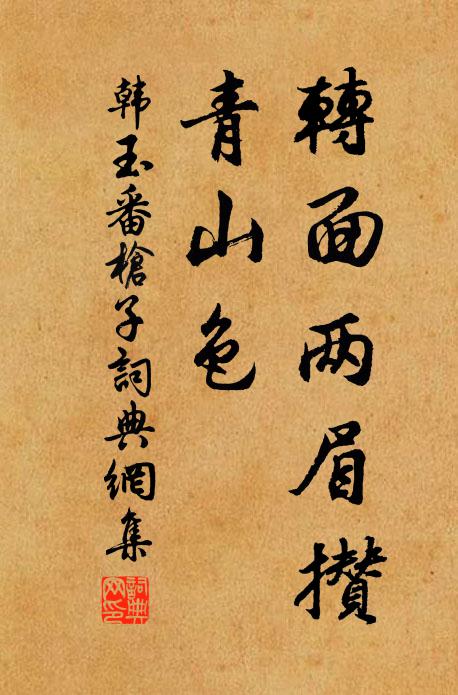 轉面两眉攒
青山色
韩玉番槍子詞典網集
詞典网印